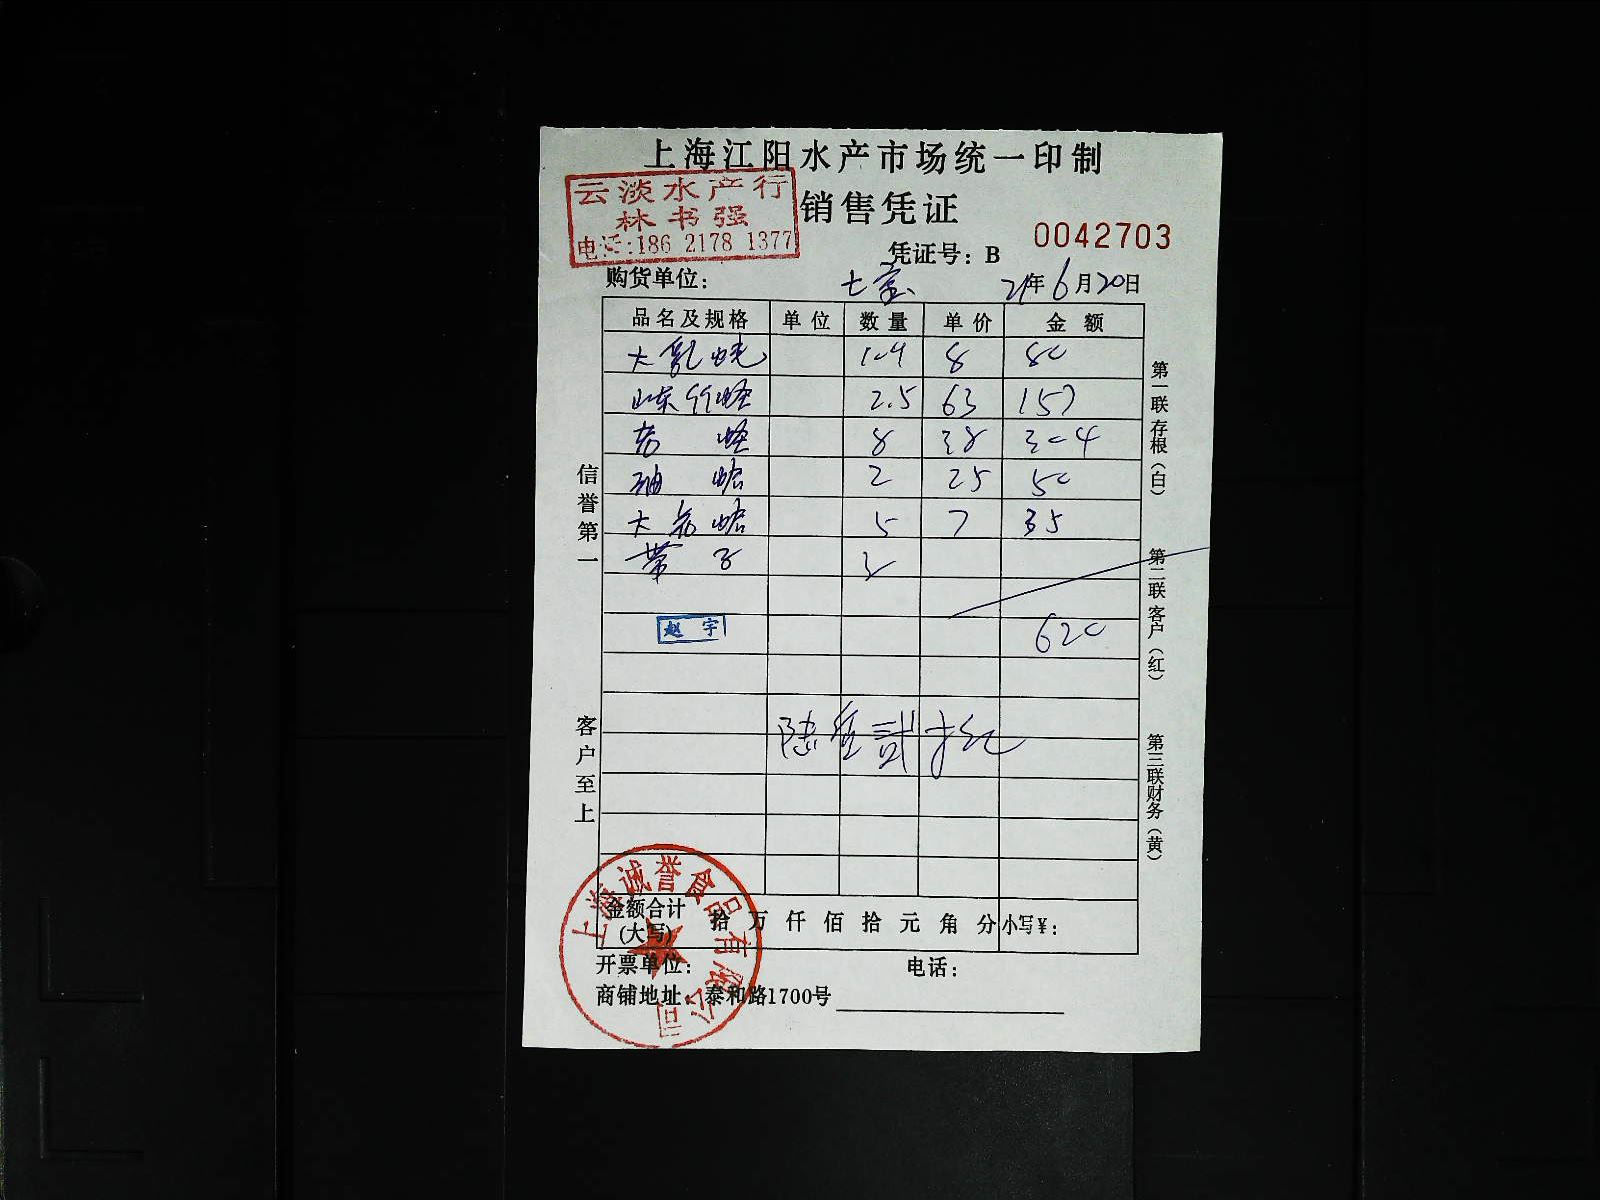 上海江阳水产市场统一印制
云淡水产行
林书强
电话:186 2178 1377
销售凭证
凭证号：B 0042703
购货单位： 七宝 21年6月20日
品名及规格 单位 数量 单价 金额
8 80
山东竹蛏 2.5 63 157
蛏 8 38 304
蛤 2 25 50
大 蛤 5 7 35
带子 3
赵宇
620
陆佰贰拾元
金额合计(大写) 拾万仟佰拾元角分 小写￥：
开票单位： 电话：
商铺地址：泰和路1700号
信誉第一
客户至上
第一联存根（白）
第二联客户（红）
第三联财务（黄）
上海诚誉食品有限公司